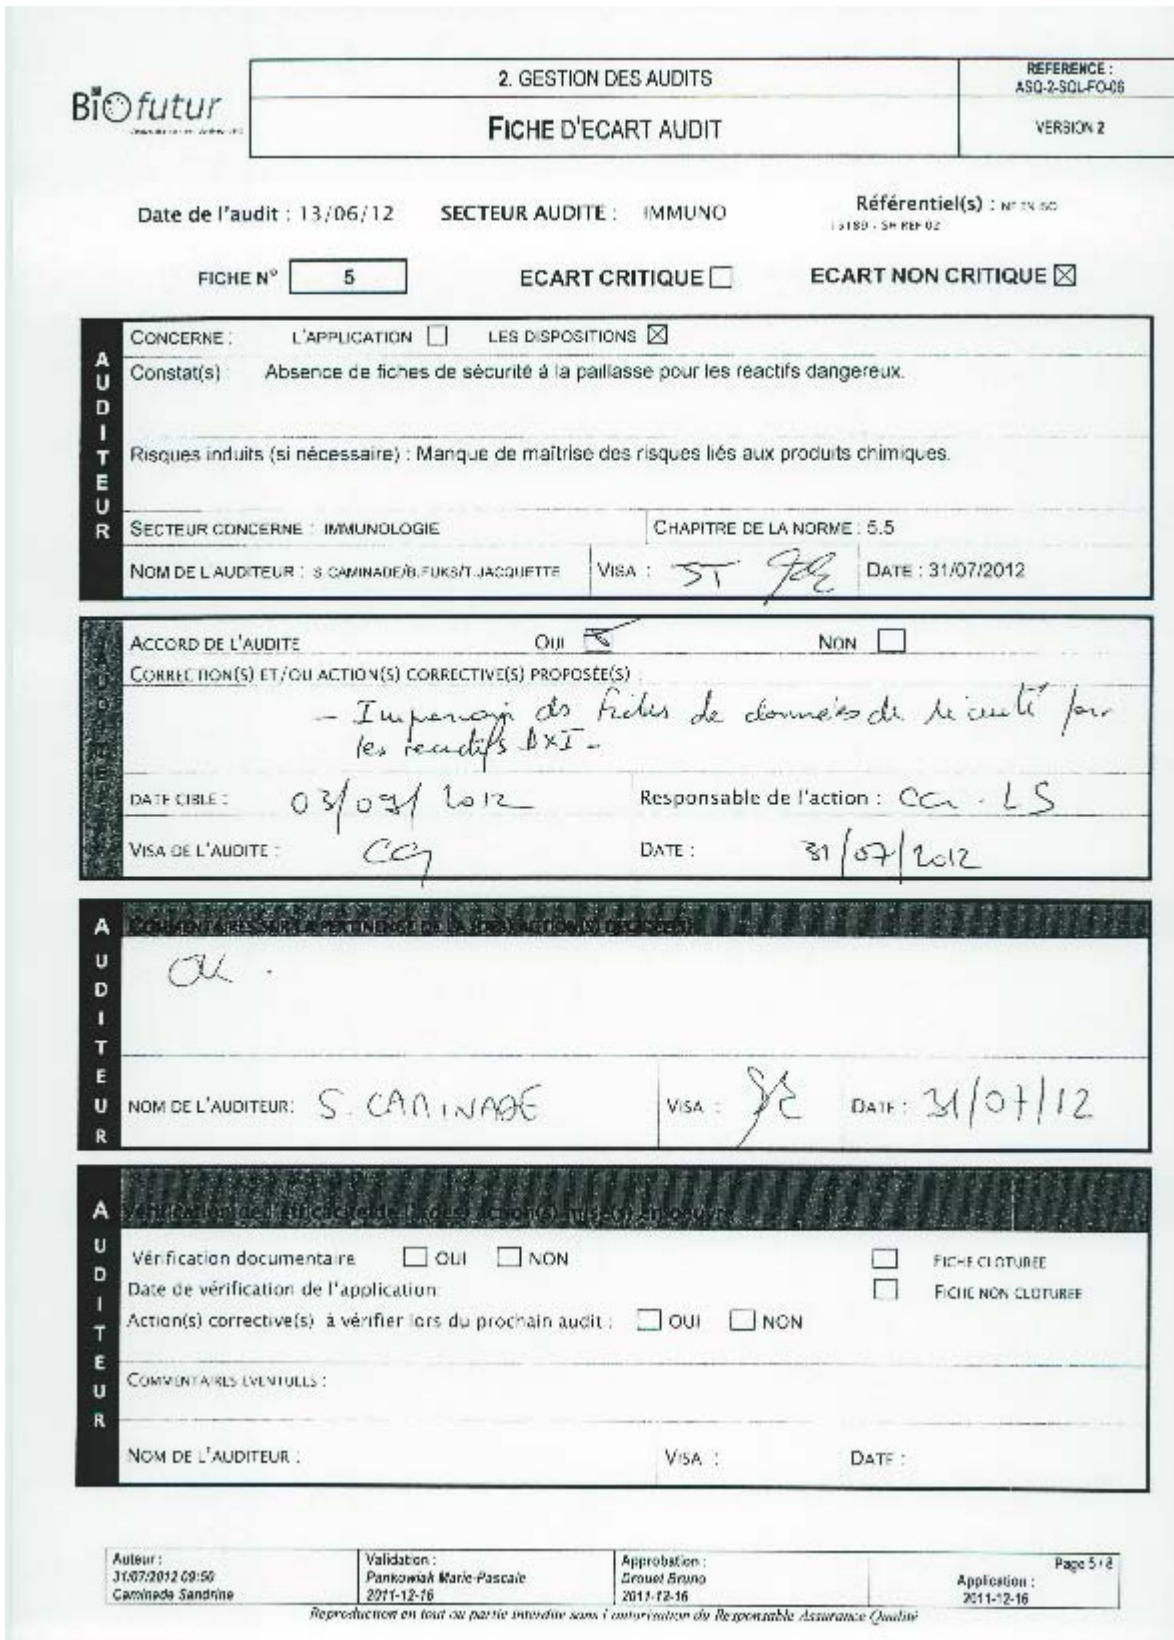 Biofutur
2. GESTION DES AUDITS
REFERENCE :
ASQ-2-SQL-FO-06
FICHE D'ECART AUDIT
VERSION 2
Date de l'audit : 13/06/12 SECTEUR AUDITE : IMMUNO Référentiel(s) : NF EN ISO
15189 - SH REF 02
FICHE N° 5 ECART CRITIQUE ☐ ECART NON CRITIQUE ☒
AUDITEUR
CONCERNE : L'APPLICATION ☐ LES DISPOSITIONS ☒
Constat(s) Absence de fiches de sécurité à la paillasse pour les réactifs dangereux.
Risques induits (si nécessaire) : Manque de maîtrise des risques liés aux produits chimiques.
SECTEUR CONCERNE : IMMUNOLOGIE CHAPITRE DE LA NORME : 5.5
NOM DE L'AUDITEUR : S.CAMINADE/B.FUKS/T.JACQUETTE VISA : DATE : 31/07/2012
ACCORD DE L'AUDITE OUI ☒ NON ☐
CORRECTION(S) ET/OU ACTION(S) CORRECTIVE(S) PROPOSÉE(S) :
- de données de sécurité pour
les réactifs DXI -
DATE CIBLE : 03/09/2012 Responsable de l'action : CG - LS
VISA DE L'AUDITE : CG DATE : 31/07/2012
AUDITEUR
COMMENTAIRES SUR LA PERTINENCE DE LA (DES) ACTION(S)
OK .
NOM DE L'AUDITEUR: S. CAMINADE VISA : DATE : 31/07/12
AUDITEUR
Vérification de l'efficacité de l'(des) action(s) mise(s) en œuvre
Vérification documentaire ☐ OUI ☐ NON ☐ FICHE CLOTUREE
Date de vérification de l'application: ☐ FICHE NON CLOTUREE
Action(s) corrective(s) à vérifier lors du prochain audit : ☐ OUI ☐ NON
COMMENTAIRES EVENTUELS :
NOM DE L'AUDITEUR : VISA : DATE :
Auteur : Validation : Approbation : Page 5 / 8
31/07/2012 09:50 Pankowiak Marie-Pascale Drouet Bruno Application :
Caminade Sandrine 2011-12-16 2011-12-16 2011-12-16
Reproduction en tout ou partie interdite sans l'autorisation du Responsable Assurance Qualité